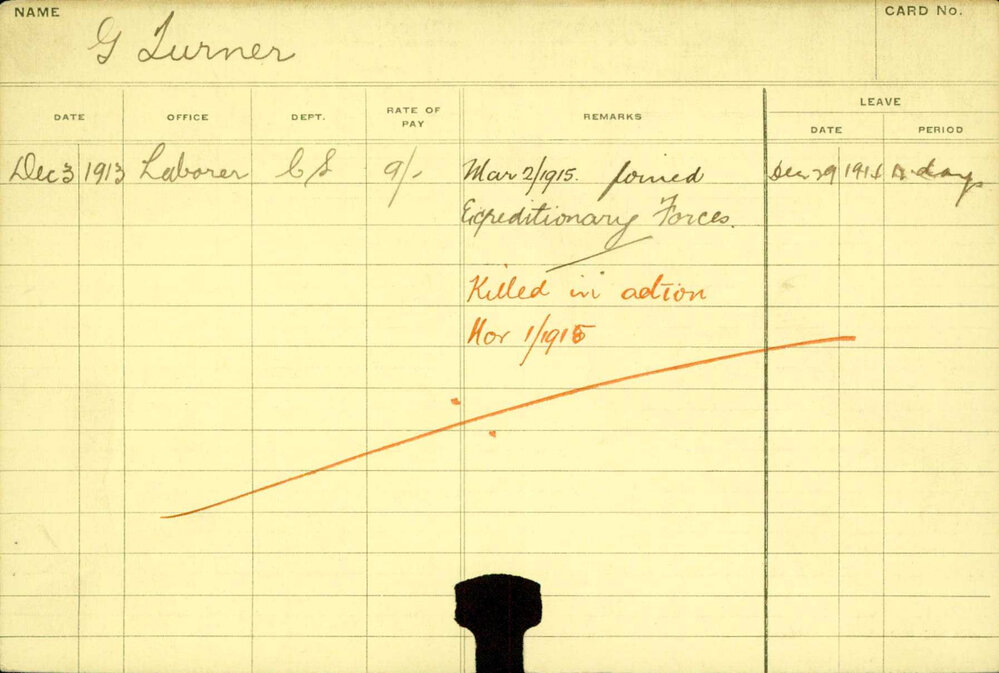 NAME
G Turner
CARD No.
DATE
OFFICE
DEPT.
RATE OF
PAY
REMARKS
LEAVE
DATE
PERIOD
Dec 3 1913 Laborer CS 9/- Mar 2/1915. joined
Expeditionary Forces.
Killed in action
Nov 1/1915
29 day